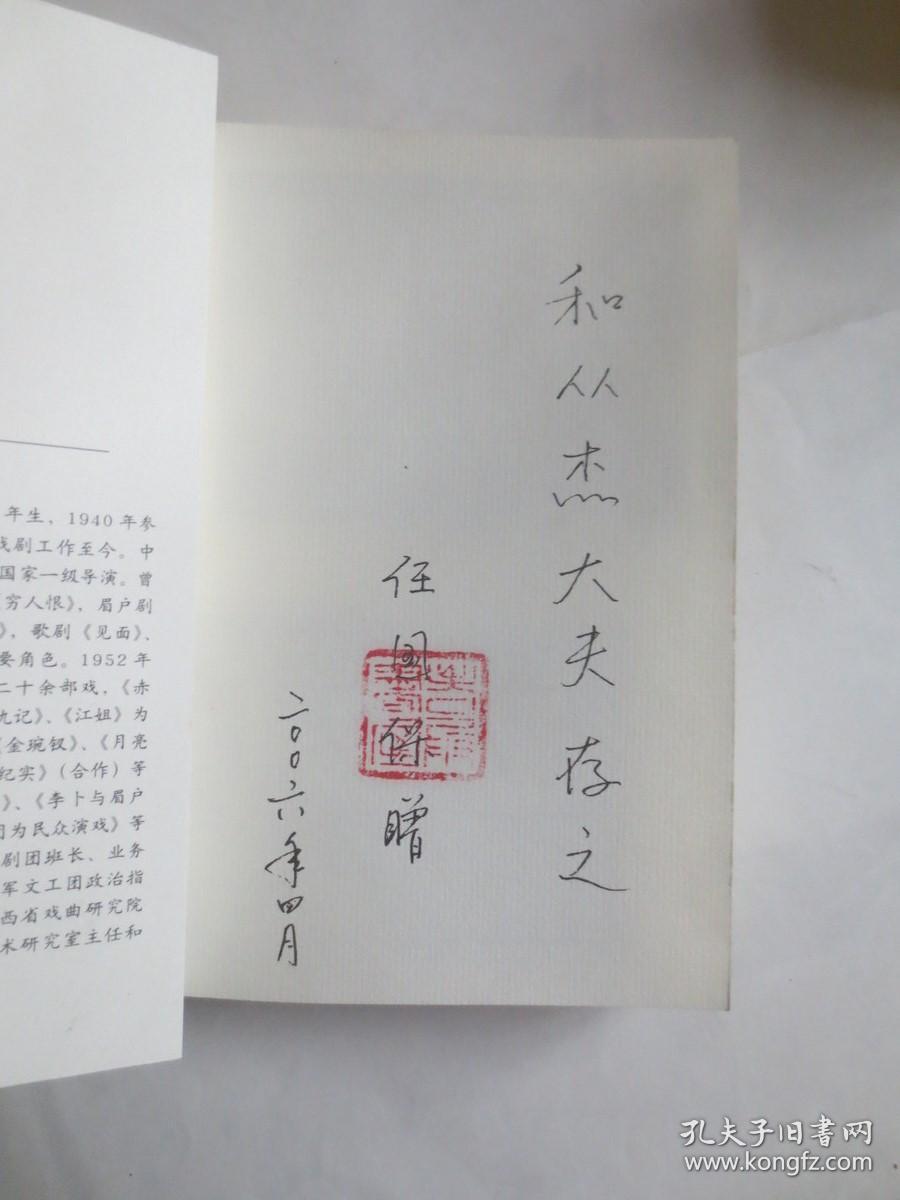 年生，1940年参
戏剧工作至今。中
国家一级导演。曾
穷人恨》，眉户剧
》，歌剧《见面》、
要角色。1952年
二十余部戏，《赤
九记》、《江姐》为
《金琬钗》、《月亮
纪实》（合作）等
》、《李卜与眉户
团为民众演戏》等
剧团班长、业务
军文工团政治指
西省戏曲研究院
术研究室主任和
和从杰大夫存之
任国保赠
二〇〇六年四月
孔夫子旧书网
www.kongfz.com